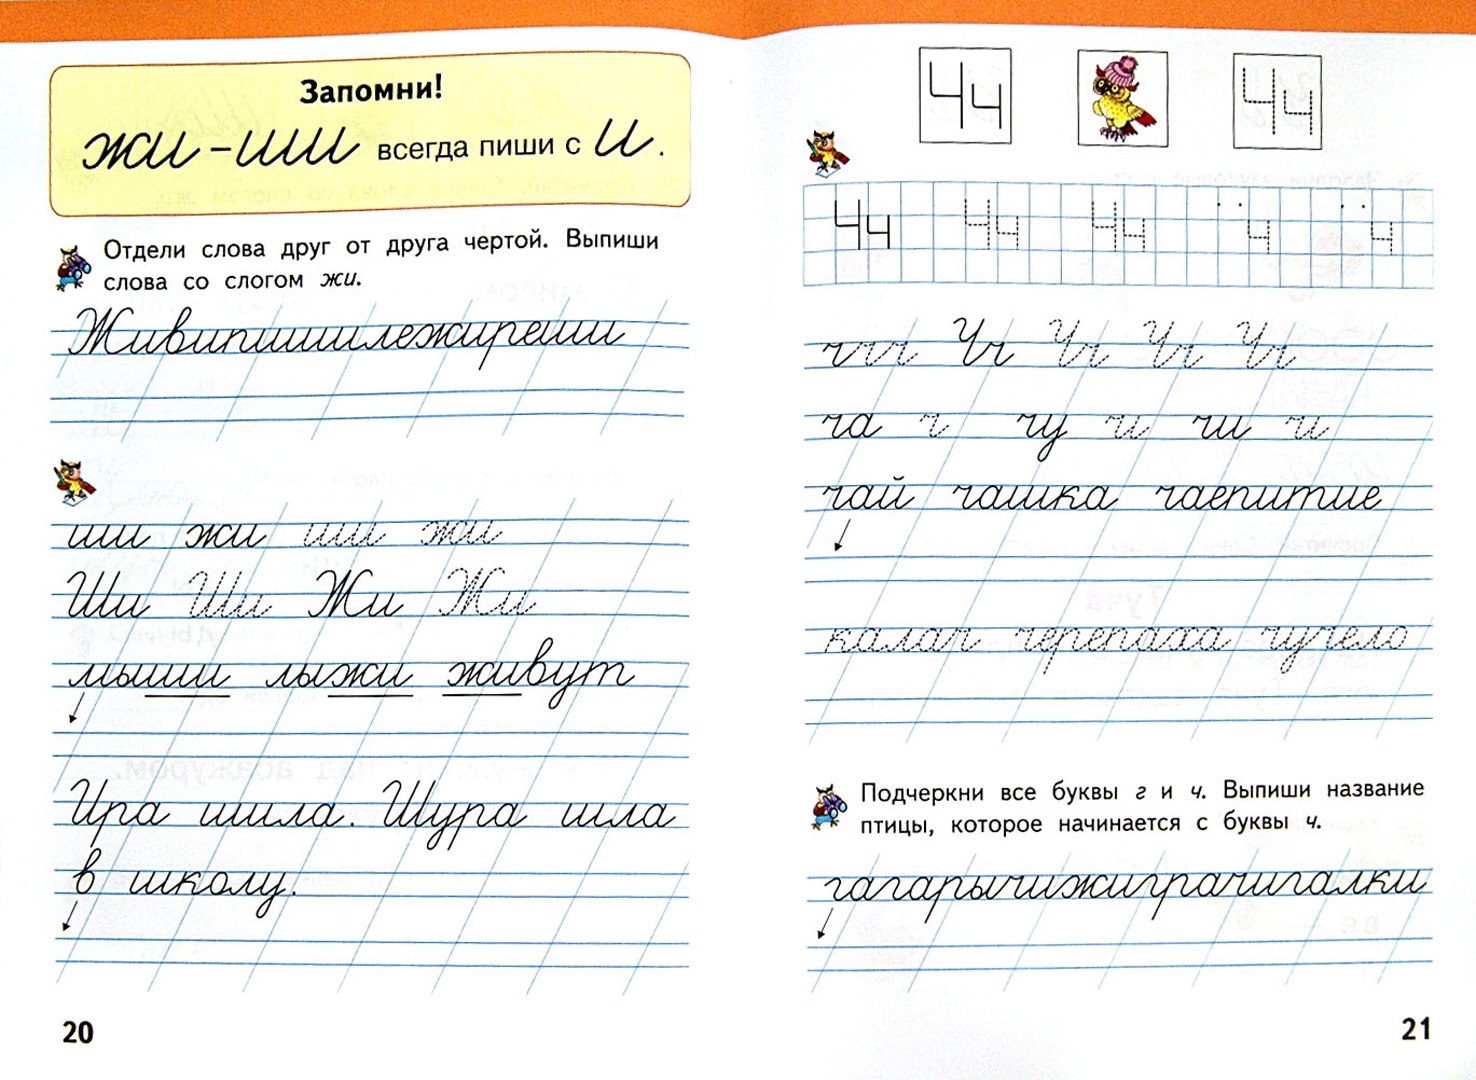 Запомни!
жи – ши всегда пиши с и.
Отдели слова друг от друга чертой. Выпиши
слова со слогом жи.
Живипишилежиреши
ши жи ши жи
Ши Ши Жи Жи
мыши лыжи живут
Ира шила. Шура шла
в школу.
20
Чч Чч
Чч Чч Чч ч ч
ччч Чч Чч Чч Чч
ча ч чу и чи и
чай чашка чаепитие
калач черепаха чучело
Подчеркни все буквы г и ч. Выпиши название
птицы, которое начинается с буквы ч.
гагарычижиграчигалки
21